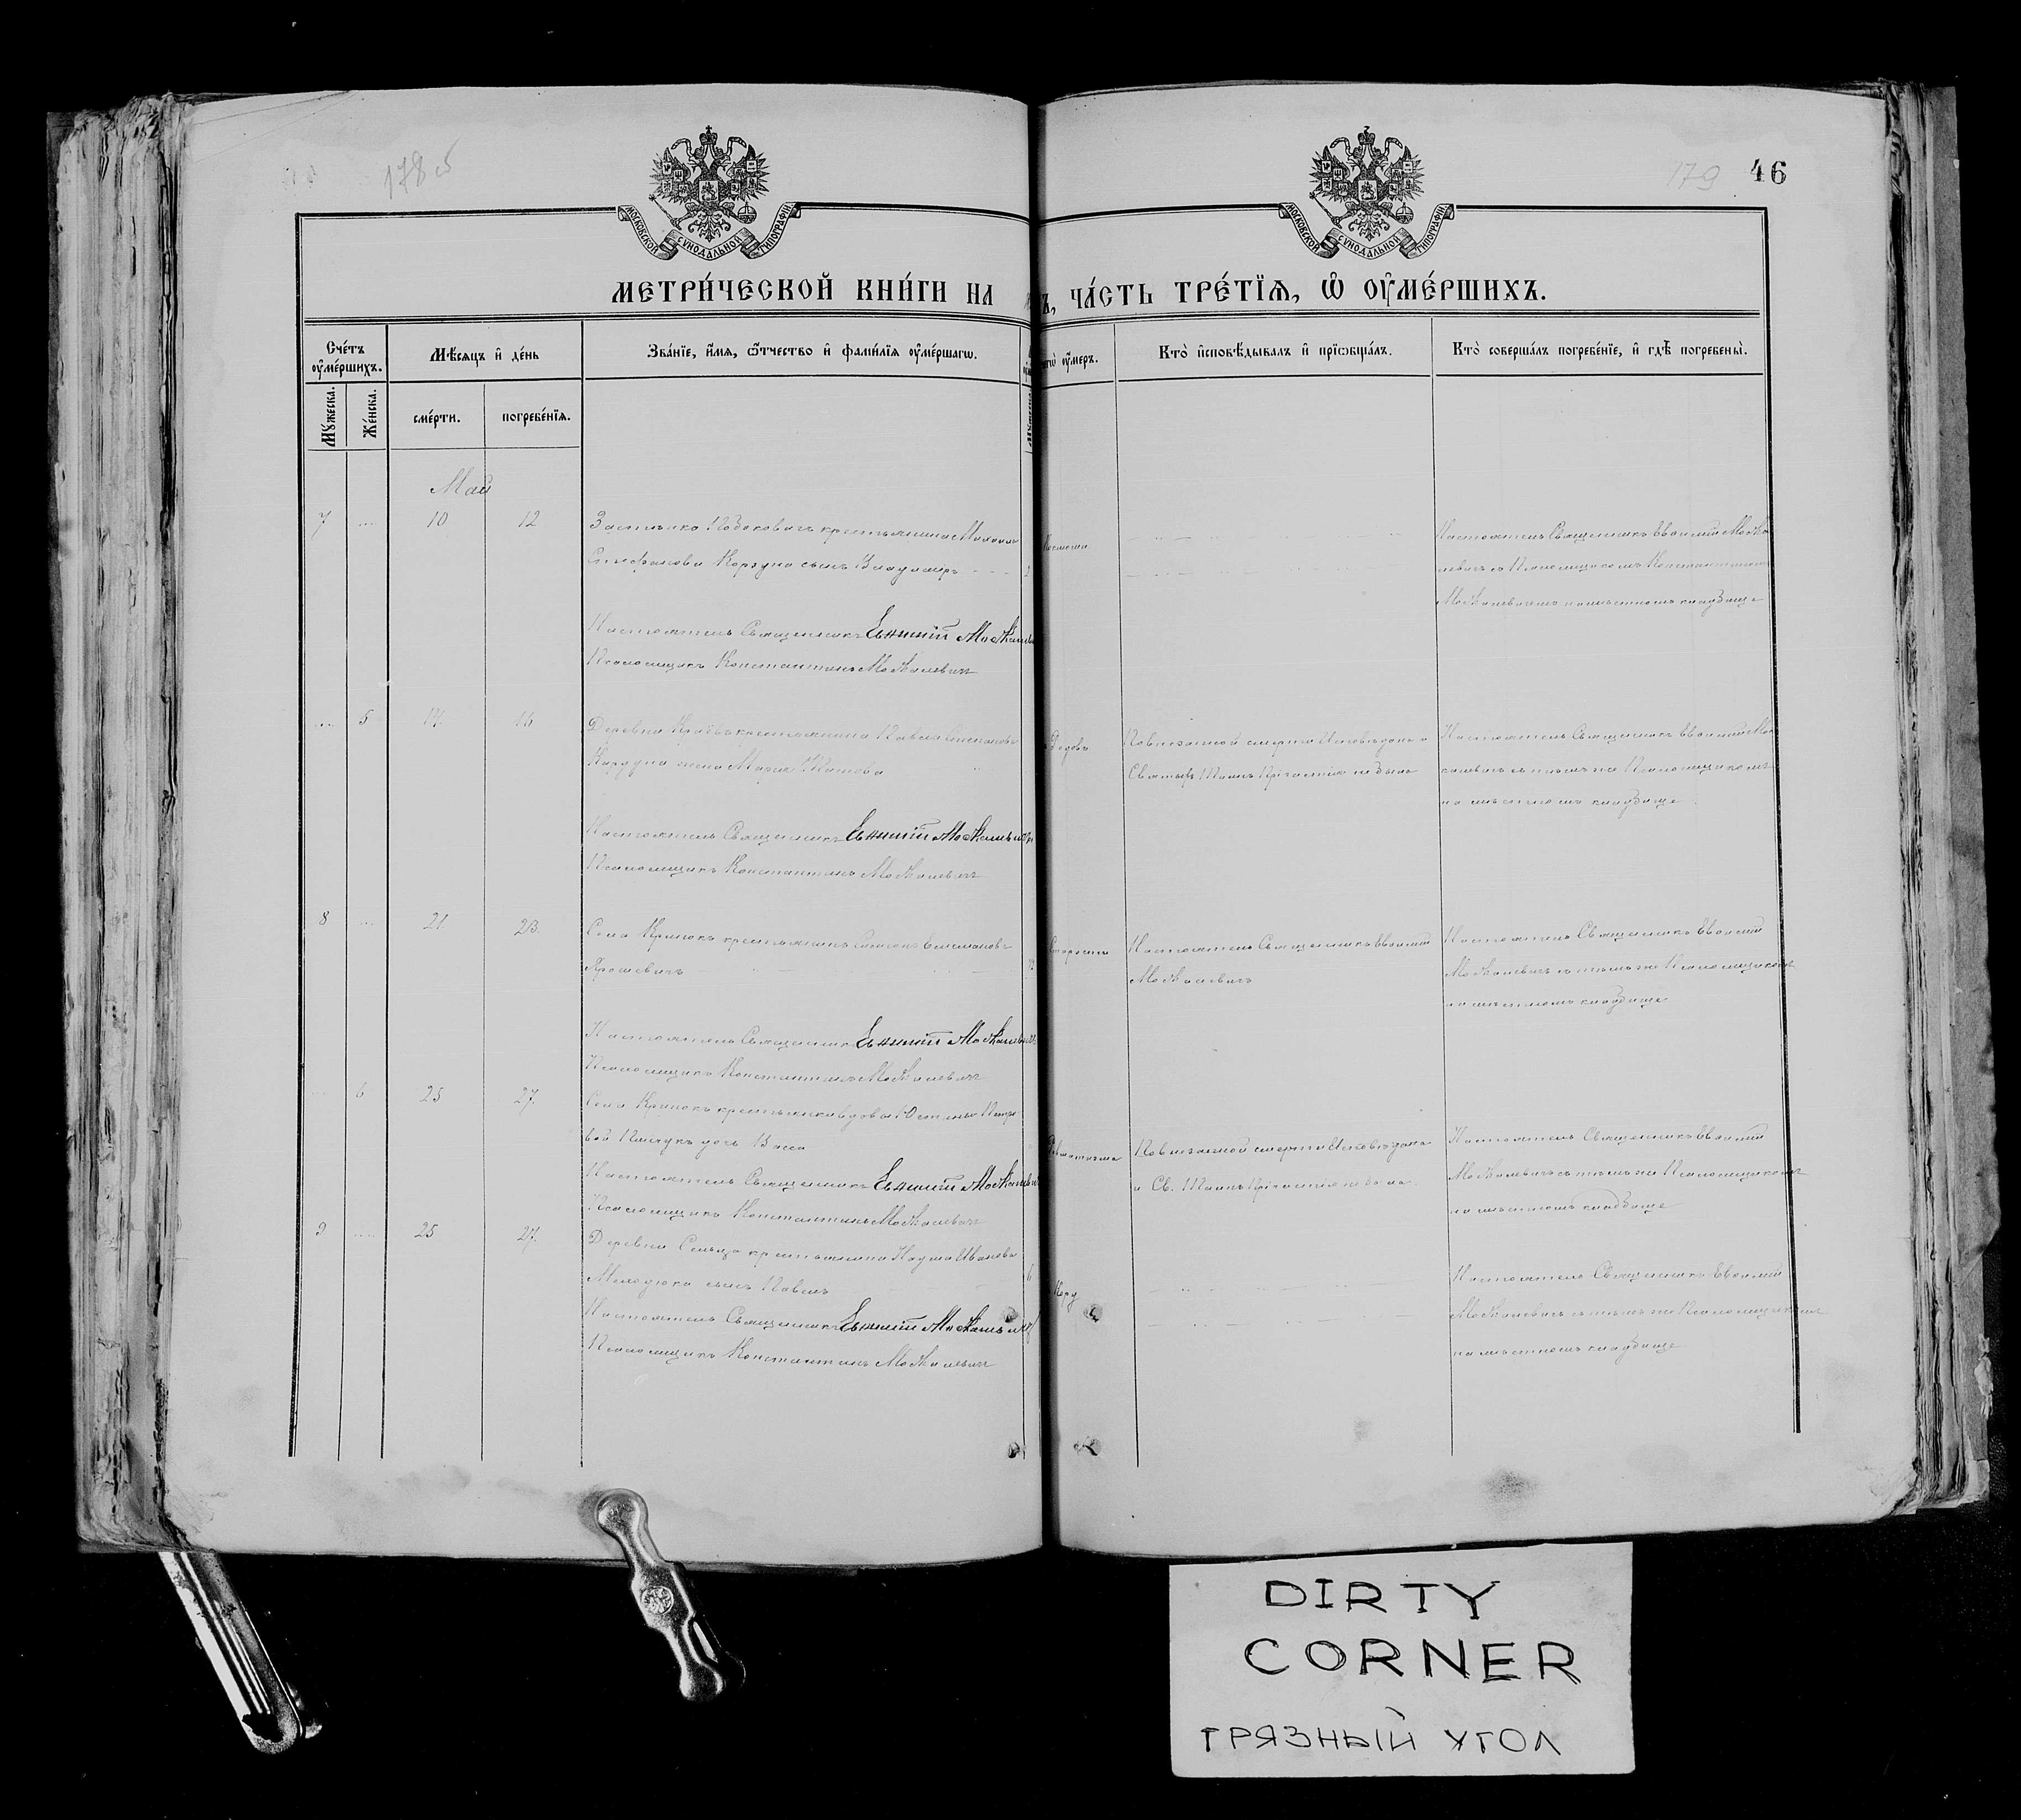 178 об
179 46
МОСКОВСКОЙ СѴНОДАЛЬНОЙ ТИПОГРАФІИ
МОСКОВСКОЙ СѴНОДАЛЬНОЙ ТИПОГРАФІИ
МЕТРИ́ЧЕСКОЙ КНИ́ГИ НА
Ъ, ЧА́СТЬ ТРЕ́ТЇѦ, Ѡ ОУМЕ́РШИХЪ.
Сче́тъ оуме́ршихъ.
Мѣ́сяцъ и де́нь
Зва́нїе, и́мя, ѻ́тчество и фами́лїя оуме́ршагѡ.
оу́меръ.
Кто̀ и҆сповѣ́дывалъ и҆ прїѡбща́лъ.
Кто̀ соверша́лъ погребе́нїе, и҆ гдѣ̀ погребены̀.
Мꙋ́жеска.
Же́нска.
сме́рти.
погребе́нїя.
Май
7 .... 10 12
крестьянина
Корзуна сынъ Владиміръ
Настоятель Священникъ Евѳимій
Псаломщикомъ Константиномъ
на мѣстномъ кладбище
Настоятель Священникъ Евѳимій Москалевичъ
Псаломщикъ Константинъ Москалевичъ
.... 5 14 16
Деревни крестьянина Павла Степанова
Корзуна жена Марія Титова
Родовъ
По внезапной смерти Исповѣдана и
Святыхъ Таинъ Причастія не было
Настоятель Священникъ Евѳимій Мос
калевичъ съ тѣмъ же Псаломщикомъ
на мѣстномъ кладбище
Настоятель Священникъ Евѳимій Москалевичъ
Псаломщикъ Константинъ Москалевичъ
8 .... 21 23.
Села крестьянинъ
Ярошевичъ
Старости
Настоятель Священникъ Евѳимій
Москалевичъ
Настоятель Священникъ Евѳимій
Москалевичъ съ тѣмъ же Псаломщикомъ
на мѣстномъ кладбище
Настоятель Священникъ Евѳимій Москалевичъ
Псаломщикъ Константинъ Москалевичъ
.... 6 25 27.
Села крестьянки вдовы Юстины Петро
вой дочь Васса
По внезапной смерти Исповѣдана
и Св. Таинъ Причастія не было.
Настоятель Священникъ Евѳимій
Москалевичъ съ тѣмъ же Псаломщикомъ
на мѣстномъ кладбище
Настоятель Священникъ Евѳимій Москалевичъ
Псаломщикъ Константинъ Москалевичъ
9 .... 25 27.
Деревни Сельца крестьянина Наума Иванова
сынъ Павелъ
Кору
Настоятель Священникъ Евѳимій
Москалевичъ съ тѣмъ же Псаломщикомъ
на мѣстномъ кладбище
Настоятель Священникъ Евѳимій Москалевичъ
Псаломщикъ Константинъ Москалевичъ
DIRTY
CORNER
ГРЯЗНЫЙ УГОЛ